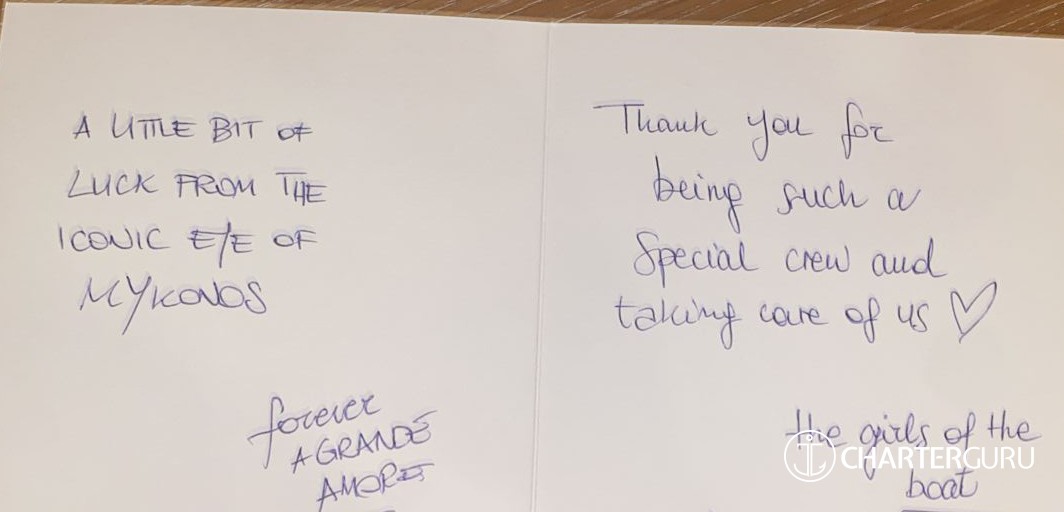 A LITTLE BIT OF
LUCK FROM THE
ICONIC EYE OF
MYKONOS
forever
A GRANDE
AMORE
Thank you for
being such a
Special crew and
taking care of us ♡
the girls of the
boat
CHARTERGURU